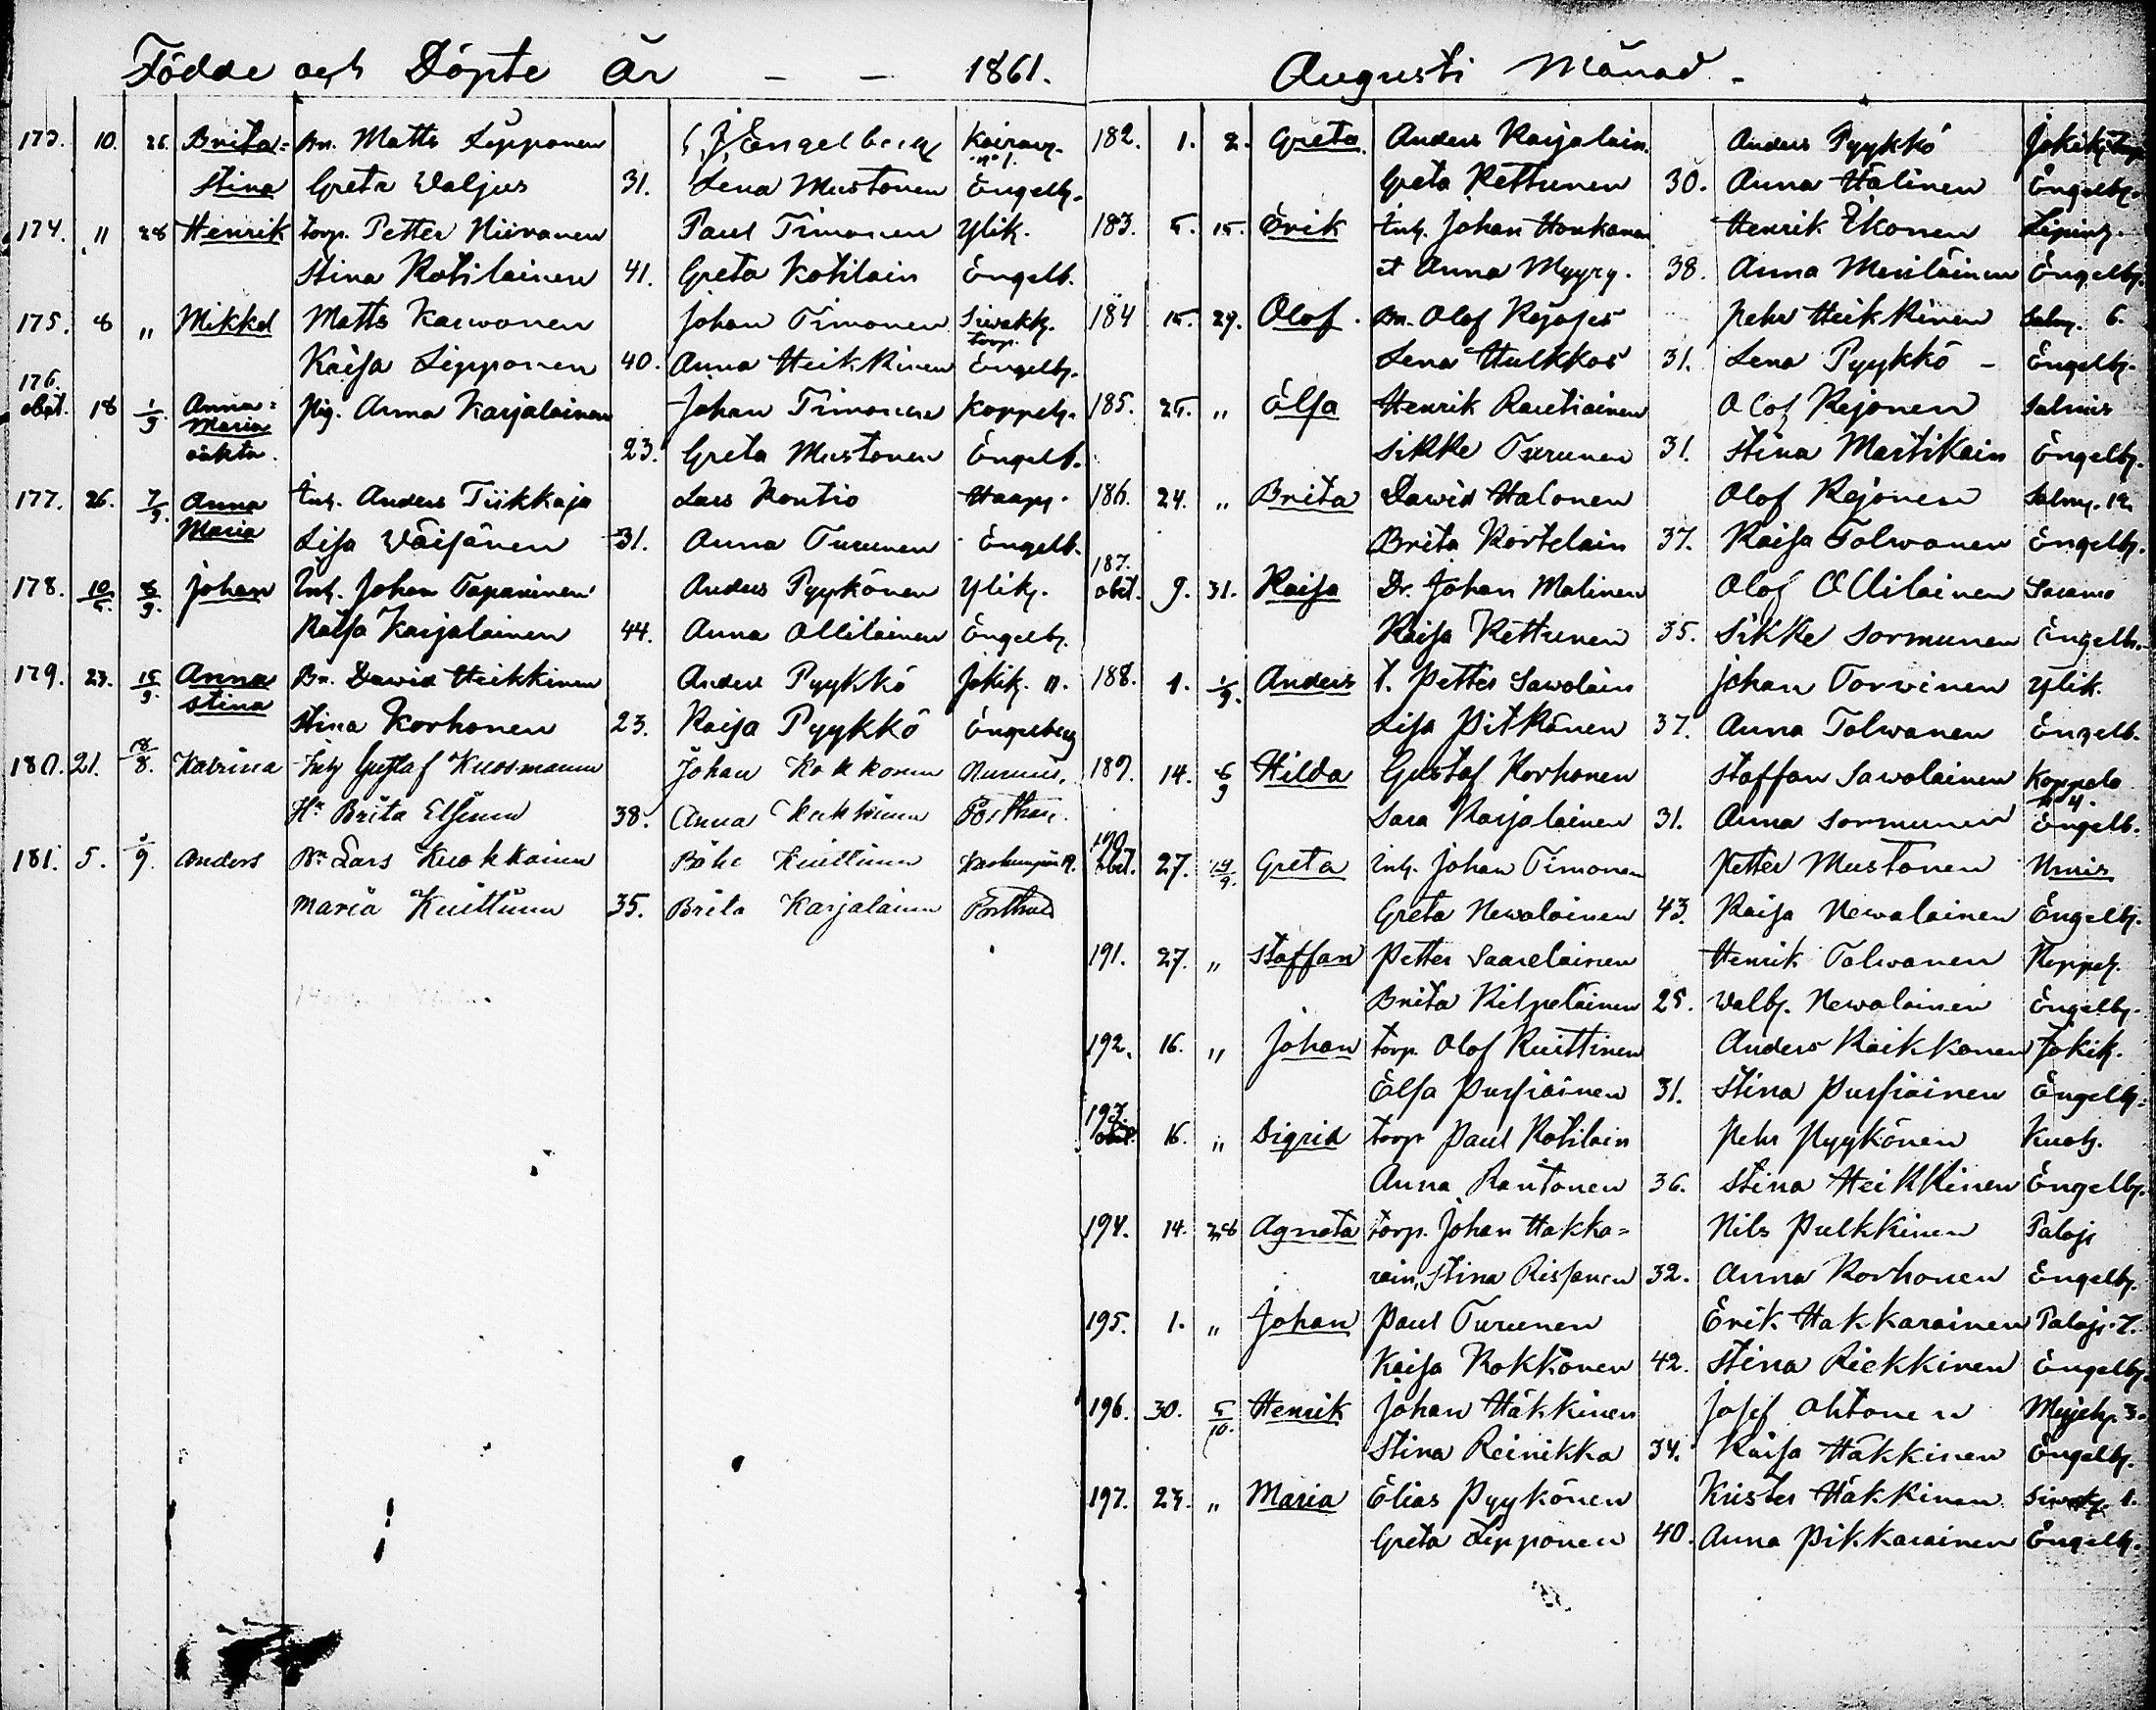 Födde och Döpte år - - 1861.
173. 10. 26. Brita= Bn. Matts Lipponen C. J. Engelberg Kairavy. n° 1.
Stina Greta Waljus 31. Lena Mustonen Engelb.
174. " 28 Henrik torp. Petter Niiranen Paul Timonen Ylik.
Stina Kotilainen 41. Greta Kotilain Engelb.
175. 8 " Mikkel Matts Karwonen Johan Timonen Siwakk. torp.
Kaisa Lipponen 40. Anna Heikkinen Engelb.
176. obit. 18 1/9 Anna= Maria oäkta. pig. Anna Karjalainen Johan Timonen Koppely.
23. Greta Mustonen Engelb.
177. 26. 7/9. Anna Maria Inh. Anders Tiikkaja Lars Kontio Haapy.
Lisa Wäisänen 31. Anna Turunen Engelb.
178. 10/5. 8/9. Johan Inh. Johan Tapaninen Anders Pyykönen Ylik.
Kaisa Karjalainen 44. Anna Ollilainen Engelb.
179. 23. 15/9. Anna Stina Bn. Dawid Heikkinen Anders Pyykkö Jokik. 11.
Stina Korhonen 23. Kaisa Pyykkö Engelberg
180. 21. 18/8. Katrina Inh Gustaf Kuosmanen Johan Kokkonen Nurmis,
Hu Brita Elsinen 38. Anna Heikkinen Porthan.
181. 5. /9. Anders Bn Lars Kuokkanen Påhl Kuittinen
Maria Kuittinen 35. Brita Karjalainen Porthan
Augusti Månad -
182. 1. 2. Greta Anders Karjalain. Anders Pyykkö Jokik. torp.
Greta Kettunen 30. Anna Halinen Engelb.
183. 5. 15. Erik Inh. Johan Honkanen Henrik Ekonen Lipiny.
et Anna Myyry. 38. Anna Meriläinen Engelb.
184 15. 29. Olof. Bn. Olof Kejoses Pehr Heikkinen Salmy. 6.
Lena Hulkkos 31. Lena Pyykkö - Engelb.
185. 25. " Elsa Henrik Rautiainen Olof Kejonen Salmis
Sikke Turunen 31. Stina Martikain Engelb.
186. 24. " Brita Dawid Halonen Olof Kejonen Salmy. 12.
Brita Kortelain 37. Kaisa Tolwanen Engelb.
187. obit. 9. 31. Kaisa Dr. Johan Malinen Olof Ollilainen Saramo
Kaisa Kettunen 35. Sikke Sormunen Engelb.
188. 1. 1/9. Anders t. Petter Sawolain Johan Torvinen Ylik.
Lisa Pitkänen 37. Anna Tolwanen Engelb.
189. 14. 8/9 Hilda Gustaf Korhonen Staffan Sawolainen Koppelo n 4.
Sara Karjalainen 31. Anna Sormunen Engelb.
190. obit. 27. 19/9. Greta Inh. Johan Timonen Petter Mustonen Nmis
Greta Newalainen 43. Kaisa Newalainen Engelb.
191. 27. " Staffan Petter Saarelainen Henrik Tolwanen Koppely.
Brita Kilpeläinen 25. Walb. Newalainen Engelb.
192. 16. " Johan torp. Olof Kuittinen Anders Kaikkonen Jokik.
Elsa Pursiainen 31. Stina Pursiainen Engelb.
193. obit. 16. " Sigrid torp Paul Kotilain Pehr Pyykönen Kuoh.
Anna Rantonen 36. Stina Heikkinen Engelb.
194. 14. 28 Agneta torp. Johan Hakka= Nils Pulkkinen Palaj.
rain, Stina Rissanen 32. Anna Korhonen Engelb.
195. 1. " Johan Paul Turunen Erik Hakkarainen Palaj. 7.
Kaisa Kokkonen 42. Stina Riekkinen Engelb.
196. 30. 5/10. Henrik Johan Häkkinen Josef Ahtonen 3.
Stina Reinikka 34. Kaisa Häkkinen Engelb.
197. 23. " Maria Elias Pyykönen Krister Häkkinen 1.
Greta Lipponen 40. Anna Pikkarainen Engelb.